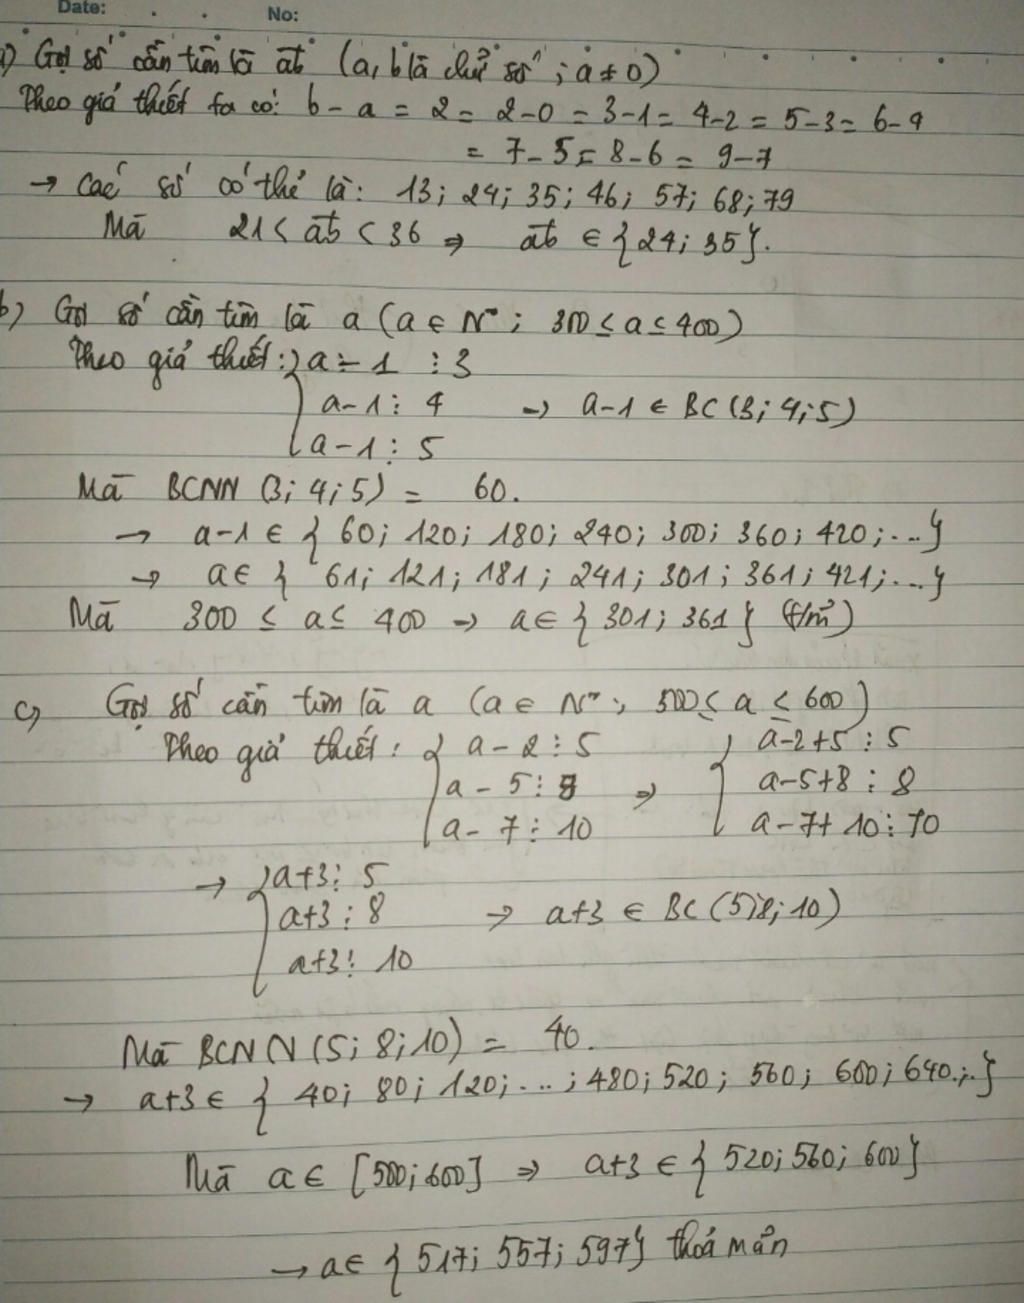 Date: . . No:
a) Gọi số cần tìm là ab (a, b là chữ số ; a ≠ 0)
Theo giả thiết ta có: b - a = 2 = 2-0 = 3-1 = 4-2 = 5-3 = 6-4
= 7-5 = 8-6 = 9-7
→ Các số có thể là: 13; 24; 35; 46; 57; 68; 79
Mà 21 < ab < 36 ⇒ ab ∈ {24; 35}.
b) Gọi số cần tìm là a (a ∈ N*; 300 ≤ a ≤ 400)
Theo giả thiết: { a - 1 ⋮ 3
a-1 ⋮ 4 → a-1 ∈ BC (3; 4; 5)
a-1 ⋮ 5
Mà BCNN (3; 4; 5) = 60.
→ a-1 ∈ { 60; 120; 180; 240; 300; 360; 420; ...}
→ a ∈ { 61; 121; 181; 241; 301; 361; 421; ...}
Mà 300 ≤ a ≤ 400 → a ∈ { 301; 361 } (t/m)
c) Gọi số cần tìm là a (a ∈ N*; 500 ≤ a ≤ 600)
Theo giả thiết: { a - 2 ⋮ 5 { a-2+5 ⋮ 5
a - 5 ⋮ 8 ⇒ a-5+8 ⋮ 8
a - 7 ⋮ 10 a-7+10 ⋮ 10
→ { a+3 ⋮ 5
a+3 ⋮ 8 → a+3 ∈ BC (5; 8; 10)
a+3 ⋮ 10
Mà BCNN (5; 8; 10) = 40.
→ a+3 ∈ { 40; 80; 120; ...; 480; 520; 560; 600; 640;..}
Mà a ∈ [500; 600] ⇒ a+3 ∈ { 520; 560; 600}
→ a ∈ { 517; 557; 597} thoả mản